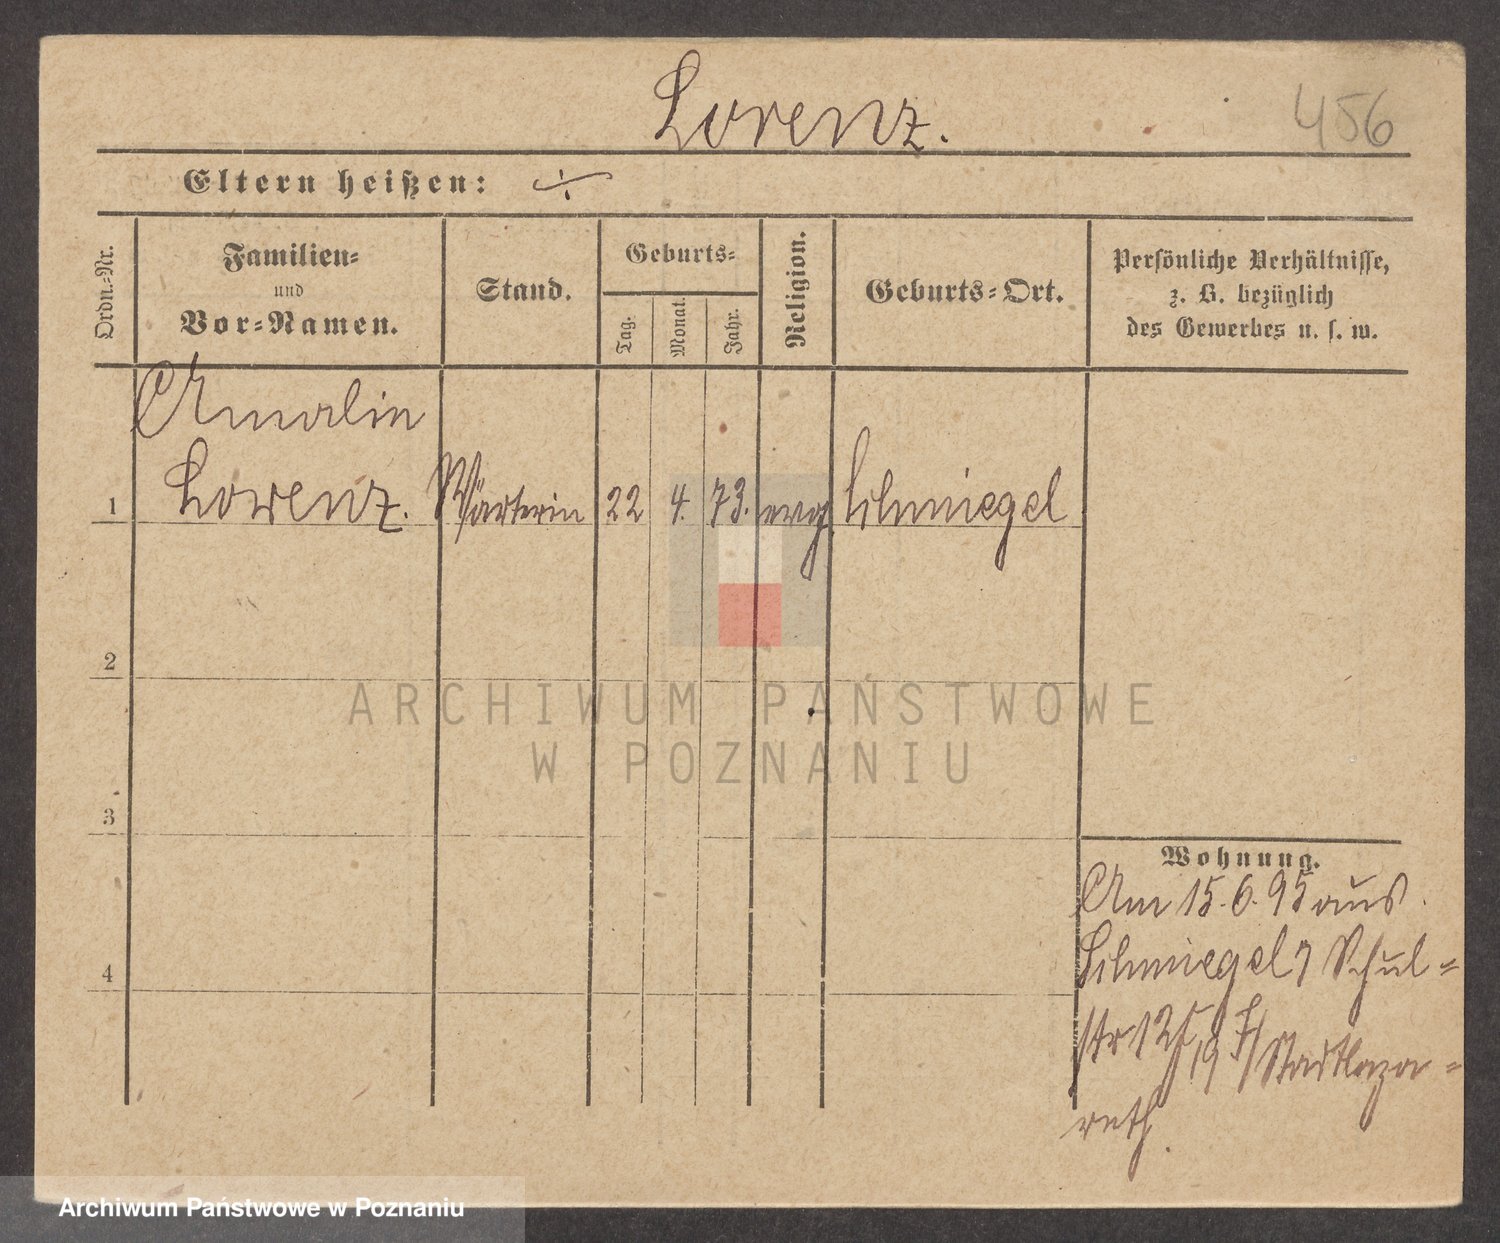 Lorenz.
456
Eltern heißen: ÷
Ordn.-Nr.
Familien-
und
Vor-Namen.
Stand.
Geburts-
Tag.
Monat.
Jahr.
Religion.
Geburts-Ort.
Persönliche Verhältnisse,
z. B. bezüglich
des Gewerbes u. s. w.
Amalie
1 Lorenz. Wärterin 22 4. 73. evg. Schmiegel
2
3
4
Wohnung.
Am 15. 6. 95 aus
Schmiegel Schul-
str 12 19 Stadtlaza-
reth.
ARCHIWUM PAŃSTWOWE
W POZNANIU
Archiwum Państwowe w Poznaniu